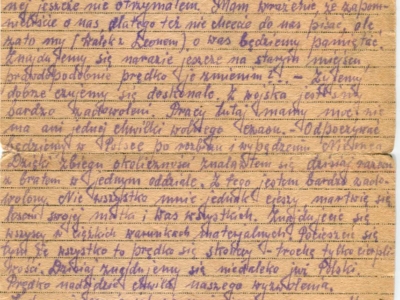 nej jeszcze nie otrzymałem. Mam wrażenie, że zapom-
nieliście o nas, dlatego też nie chcecie do nas pisać, ale
zato my (Walek z Leonem) o was będziemy pamiętać.
Znajdujemy się narazie jeszcze na starym miejscu,
prawdopodobnie prędko je zmienimy. - Żyjemy
dobrze czujemy się doskonale. Z wojska jesteśmy
bardzo zadowoleni. Pracy tutaj mamy moc nie
ma ani jednej chwilki wolnego czasu. - Odpoczywać
będziemy w Polsce po rozbiciu i wypędzeniu Niemca
Dzięki zbiegu okoliczności znalazłem się dzisiaj razem
z bratem w jednym oddziele. Z tego jestem bardzo zado-
wolony. Nie wszystko mnie jednak cieszy, martwię się
losem swojej matki i was wszystkich. Znajdujecie się
wszyscy w ciężkich warunkach materjalnych. Pocieszcie się
tym że wszystko to prędko się skończy - trochę tylko cierpli-
wości. Dzisiaj znajdujemy się niedaleko już Polski.
Prędko nadejdzie chwila naszego wyzwolenia.